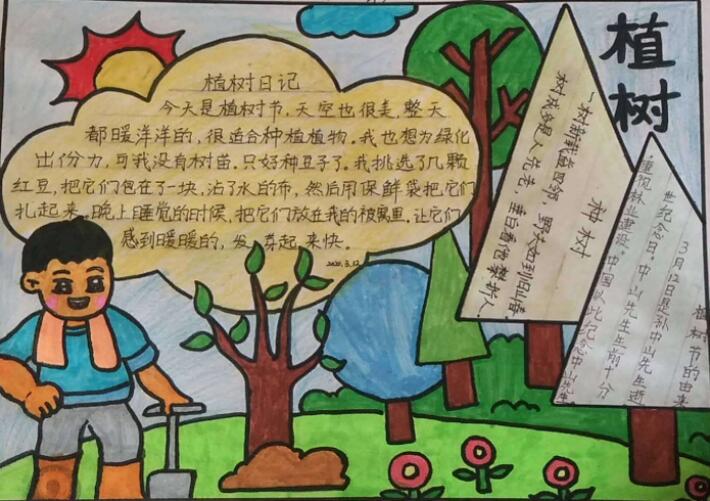 植树
植树日记
今天是植树节,天空也很走,整天
都暖洋洋的,很适合种植植物。我也想为绿化
出份力,可我没有树苗。只好种豆子了。我挑选了几颗
红豆,把它们包在了一块,沾了水的布,然后用保鲜袋把它们
扎起来。晚上睡觉的时候,把它们放在我的被窝里。让它们
感到暖暖的,发芽起来快。
2020.3.12
种树
一树新栽益四邻,野夫如到旧山春
树成多是人先老,垂白看他攀折人。
植树节的由来
3月12日是孙中山先生逝
世纪念日。中山先生生前十分
重视林业建设。中国以此纪念中山先生。